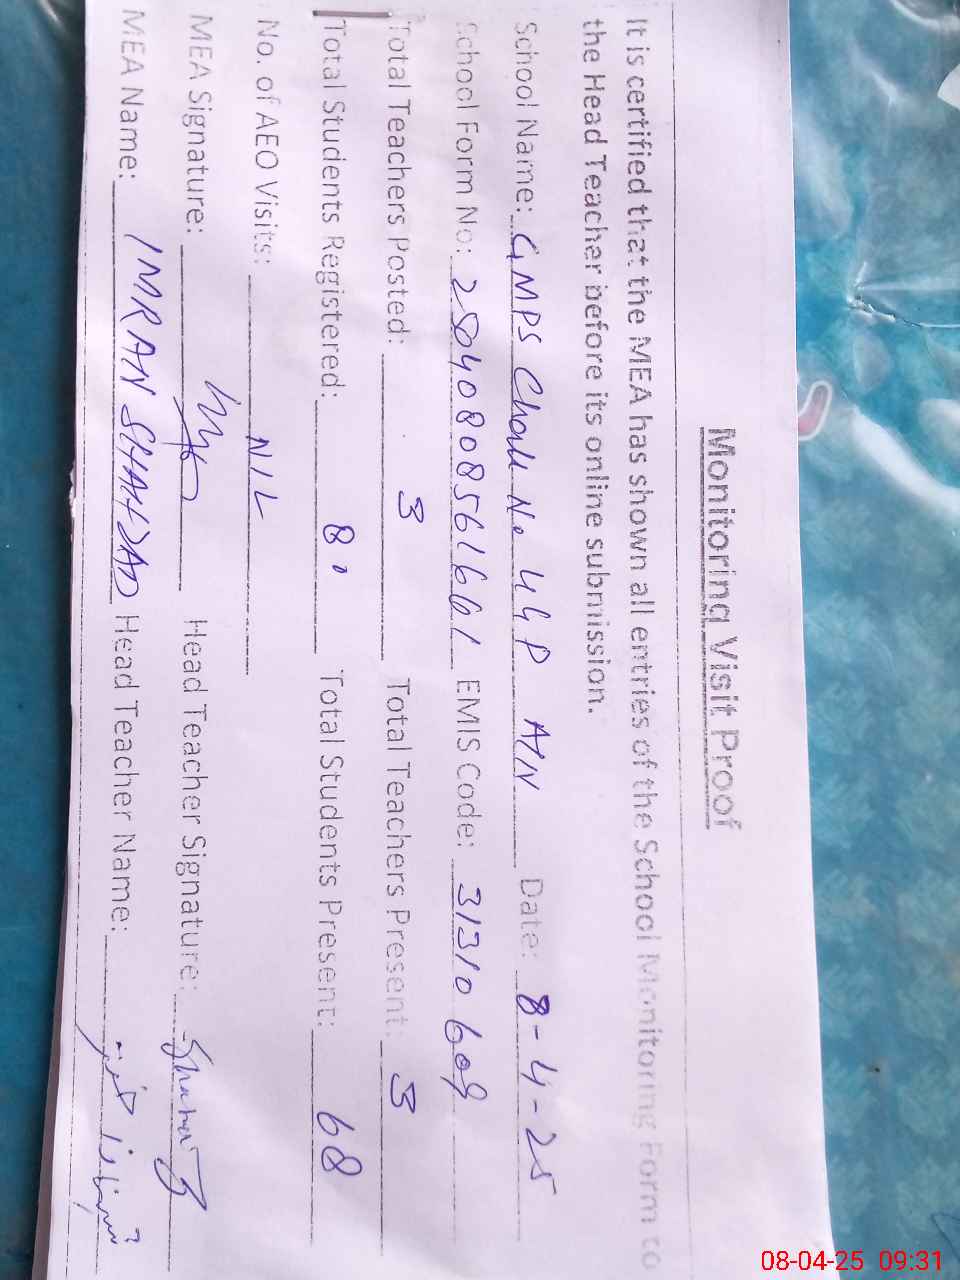 Monitoring Visit Proof
It is certified that the MEA has shown all entries of the School Monitoring Form to
the Head Teacher before its online submission.
School Name: GMPS Chak No 44P A/N Date: 8-4-25
School Form No: 25040808561661 EMIS Code: 31310609
Total Teachers Posted: 3 Total Teachers Present: 3
Total Students Registered: 80 Total Students Present: 68
No. of AEO Visits: NIL
MEA Signature: Head Teacher Signature:
MEA Name: IMRAN SHAHZAD Head Teacher Name:
08-04-25 09:31